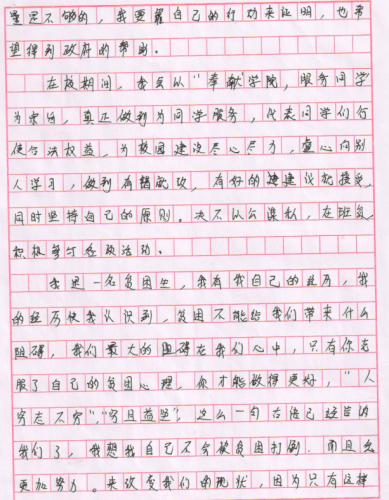 是远不够的，我要靠自己的行动来证明，也希
望得到政府的帮助。
在校期间，我会以"奉献学院，服务同学
为宗旨，真正做到为同学服务，代表同学们行
使合法权益，为校园建设尽心尽力，虚心向别
人学习，做到有错就改，有好的建建议就接受，
同时坚持自己的原则。决不以公谋私，在班级
积极筹行各项活动。
我是一名贫困生，我有我自己的经历，我
的经历使我认识到，贫困不能给我们带来什么
阻碍，我们最大的阻碍在我们心中，只有你克
服了自己的贫困心理，你才能做得更好，"人
穷志不穷""穷且益坚"，这么一句古语已经告诉
我们了，我想我自己不会被贫困打倒，而且会
更加努力。来改变我们的现状，因为只有这样